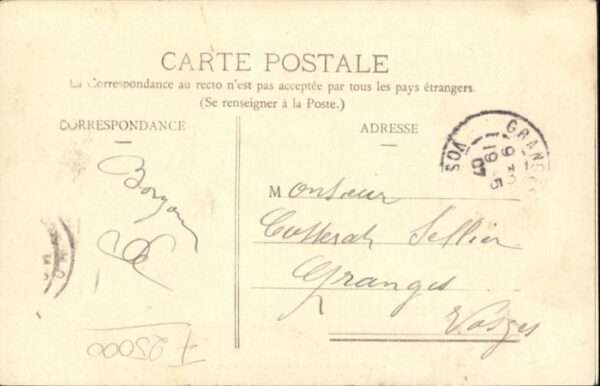 CARTE POSTALE
La Correspondance au recto n'est pas acceptée par tous les pays étrangers.
(Se renseigner à la Poste.)
CORRESPONDANCE
ADRESSE
GRANGES
VOS
19 -5
07
Monsieur
Sellier
Granges
Vosges
F25000